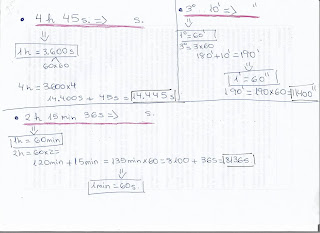 • 4 h 45s. => s.
1h = 3.600s
60x60
4h = 3.600x4
14.400s + 45s = 14.445s
• 3° 10' => "
1° = 60'
3° = 3x60
180' + 10' = 190'
1' = 60"
190' = 190x60 = 11400"
• 2 h 15 min 36s => s.
1h = 60min
2h = 60x2=
120min + 15min = 135min x60 = 8100 + 36s = 8136s
1min = 60s.